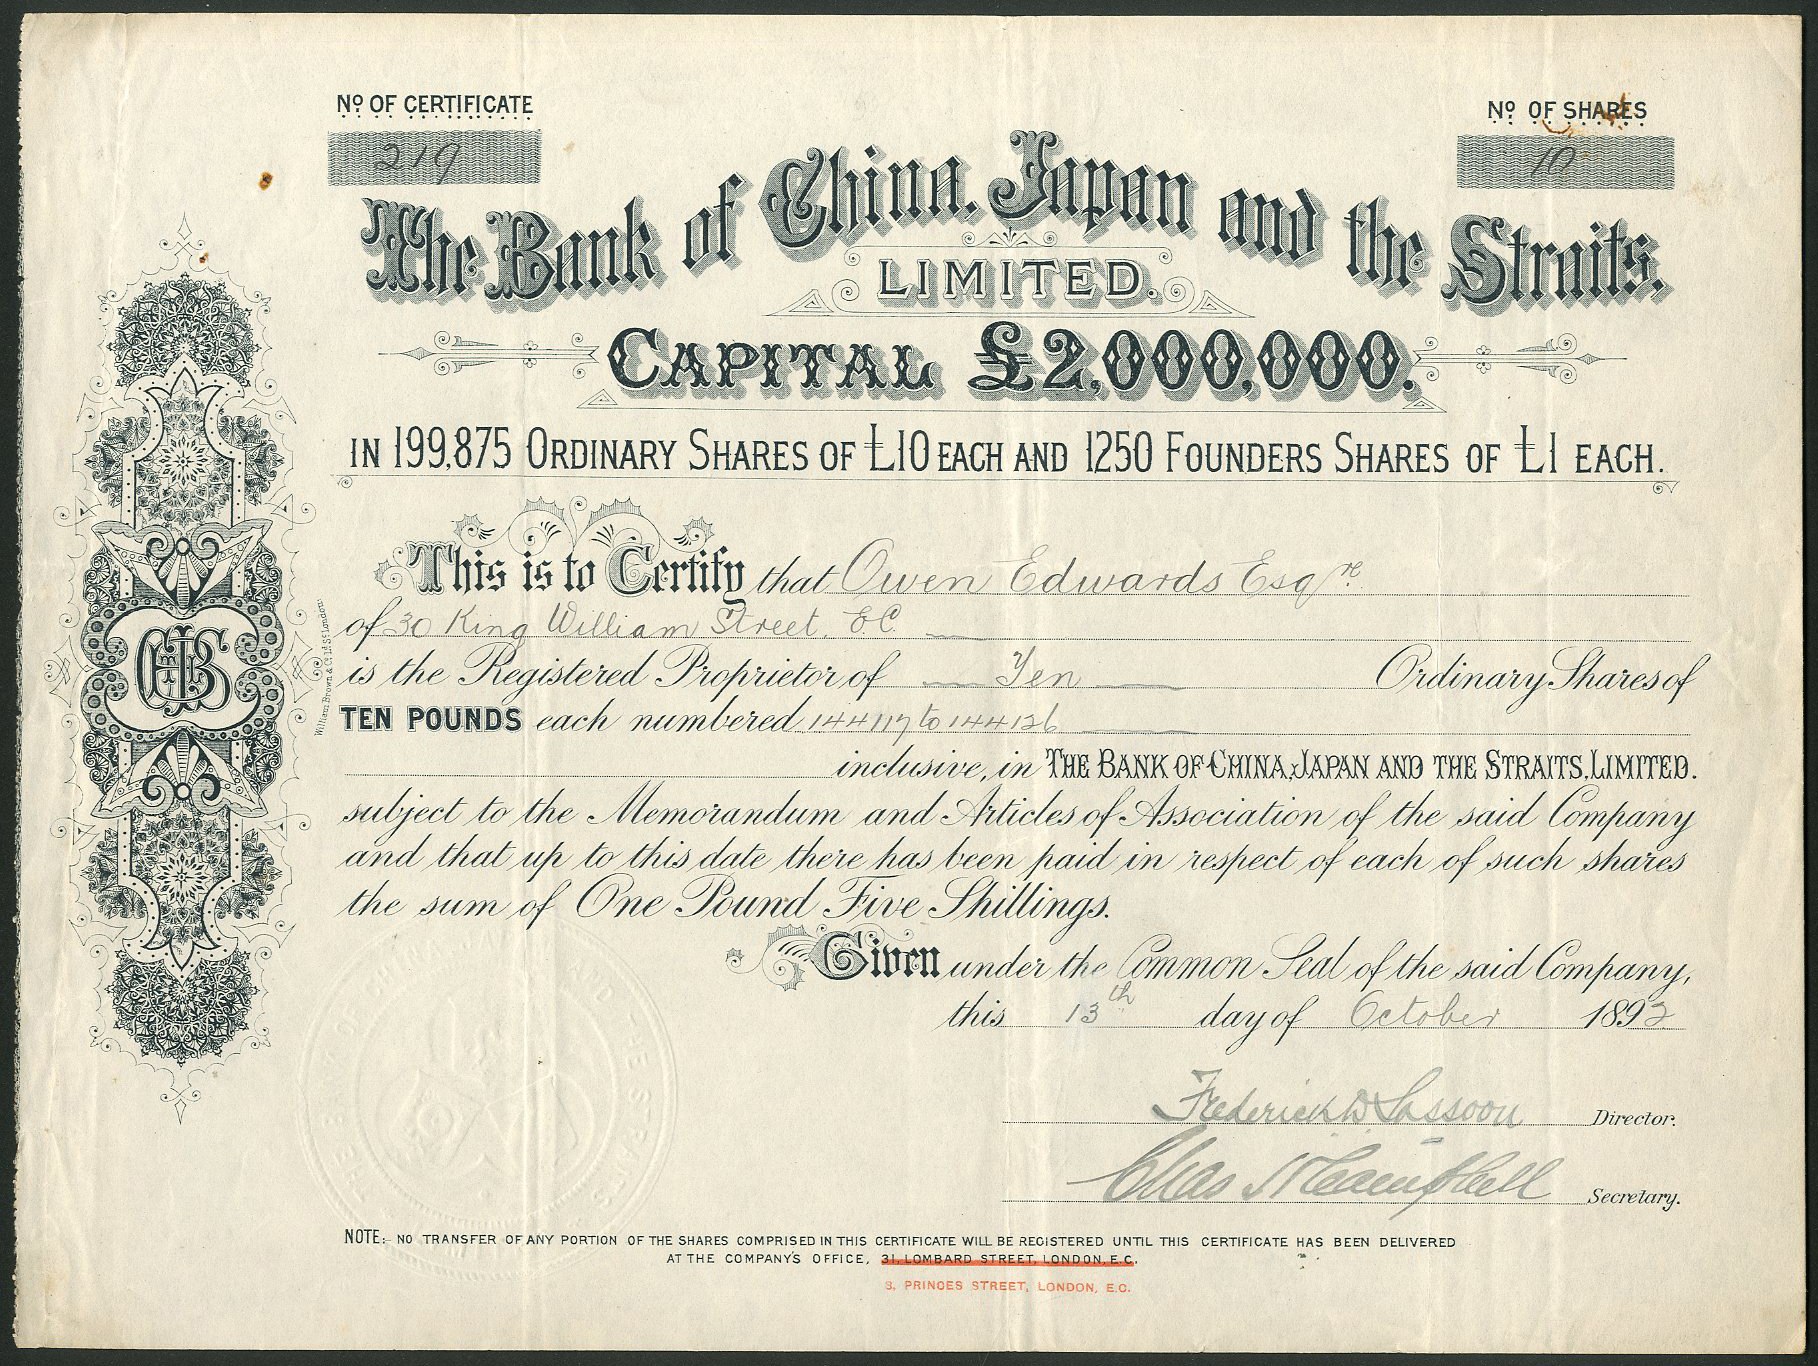 Nº OF CERTIFICATE
219
Nº OF SHARES
10
The Bank of China, Japan and the Straits,
LIMITED.
CAPITAL £2,000,000.
IN 199,875 ORDINARY SHARES OF £10 EACH AND 1250 FOUNDERS SHARES OF £1 EACH.
This is to Certify that Owen Edwards Esqre.
of 30 King William Street, E.C.
is the Registered Proprietor of Ten Ordinary Shares of
TEN POUNDS each numbered 144117 to 144126
inclusive, in THE BANK OF CHINA, JAPAN AND THE STRAITS, LIMITED.
subject to the Memorandum and Articles of Association of the said Company
and that up to this date there has been paid in respect of each of such shares
the sum of One Pound Five Shillings.
Given under the Common Seal of the said Company,
this 13th day of October 1892
Frederick D Sassoon Director.
Chas Campbell Secretary.
NOTE:- NO TRANSFER OF ANY PORTION OF THE SHARES COMPRISED IN THIS CERTIFICATE WILL BE REGISTERED UNTIL THIS CERTIFICATE HAS BEEN DELIVERED
AT THE COMPANY'S OFFICE, 31, LOMBARD STREET, LONDON, E.C.
3, PRINCES STREET, LONDON, E.C.
William Brown & Co. Ld. St. London.